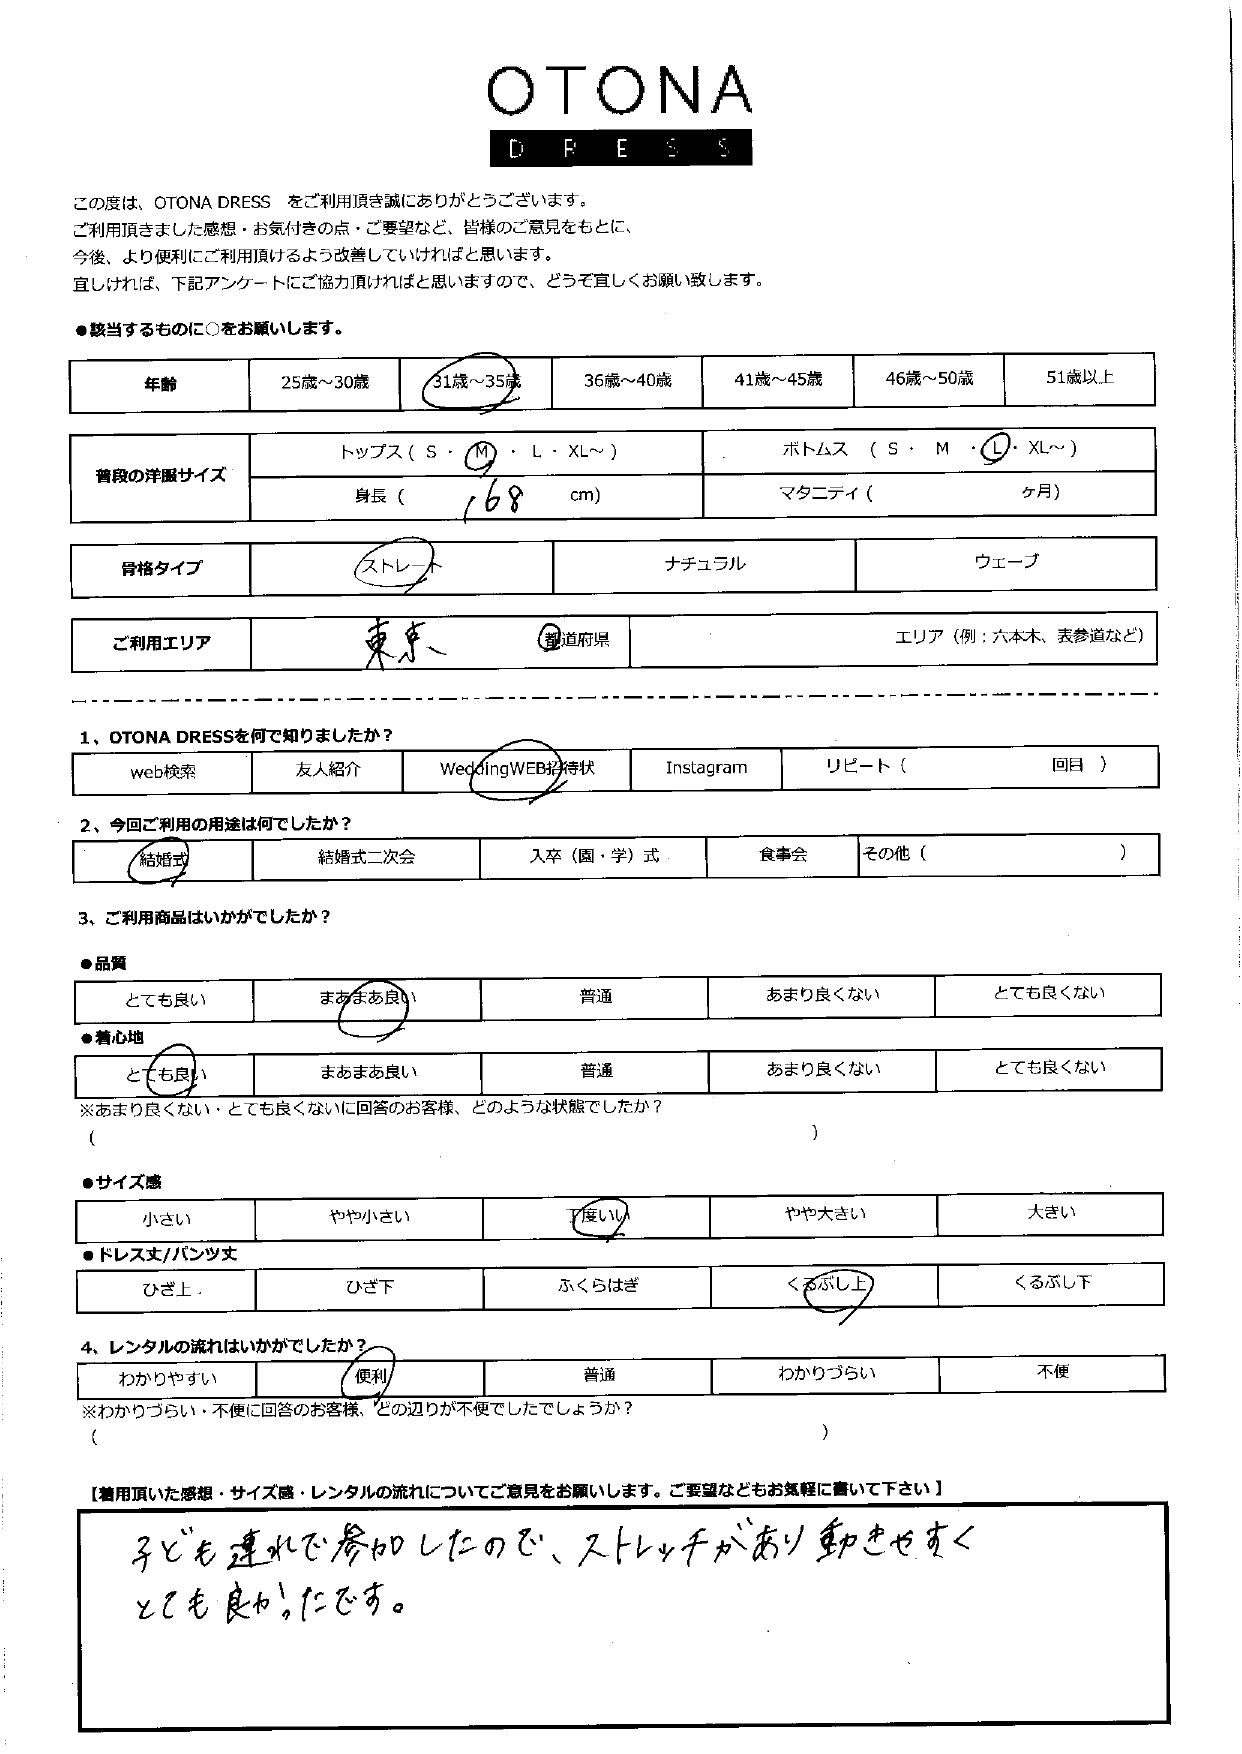 OTONA
DRESS
この度は、OTONA DRESS　をご利用頂き誠にありがとうございます。
ご利用頂きました感想・お気付きの点・ご要望など、皆様のご意見をもとに、
今後、より便利にご利用頂けるよう改善していければと思います。
宜しければ、下記アンケートにご協力頂ければと思いますので、どうぞ宜しくお願い致します。
●該当するものに○をお願いします。
年齢 25歳～30歳 31歳～35歳 36歳～40歳 41歳～45歳 46歳～50歳 51歳以上
普段の洋服サイズ トップス ( S ・ M ・ L ・ XL～ ) ボトムス ( S ・ M ・ L ・ XL～ )
身長 ( 168 cm) マタニティ ( ヶ月)
骨格タイプ ストレート ナチュラル ウェーブ
ご利用エリア 東京 都道府県 エリア（例：六本木、表参道など）
1、OTONA DRESSを何で知りましたか？
web検索 友人紹介 WeddingWEB招待状 Instagram リピート（ 回目 ）
2、今回ご利用の用途は何でしたか？
結婚式 結婚式二次会 入卒（園・学）式 食事会 その他（ ）
3、ご利用商品はいかがでしたか？
●品質
とても良い まあまあ良い 普通 あまり良くない とても良くない
●着心地
とても良い まあまあ良い 普通 あまり良くない とても良くない
※あまり良くない・とても良くないに回答のお客様、どのような状態でしたか？
( )
●サイズ感
小さい やや小さい 丁度いい やや大きい 大きい
●ドレス丈/パンツ丈
ひざ上 ひざ下 ふくらはぎ くるぶし上 くるぶし下
4、レンタルの流れはいかがでしたか？
わかりやすい 便利 普通 わかりづらい 不便
※わかりづらい・不便に回答のお客様、どの辺りが不便でしたでしょうか？
( )
【着用頂いた感想・サイズ感・レンタルの流れについてご意見をお願いします。ご要望などもお気軽に書いて下さい】
子ども連れで参加したので、ストレッチがあり動きやすく
とても良かったです。